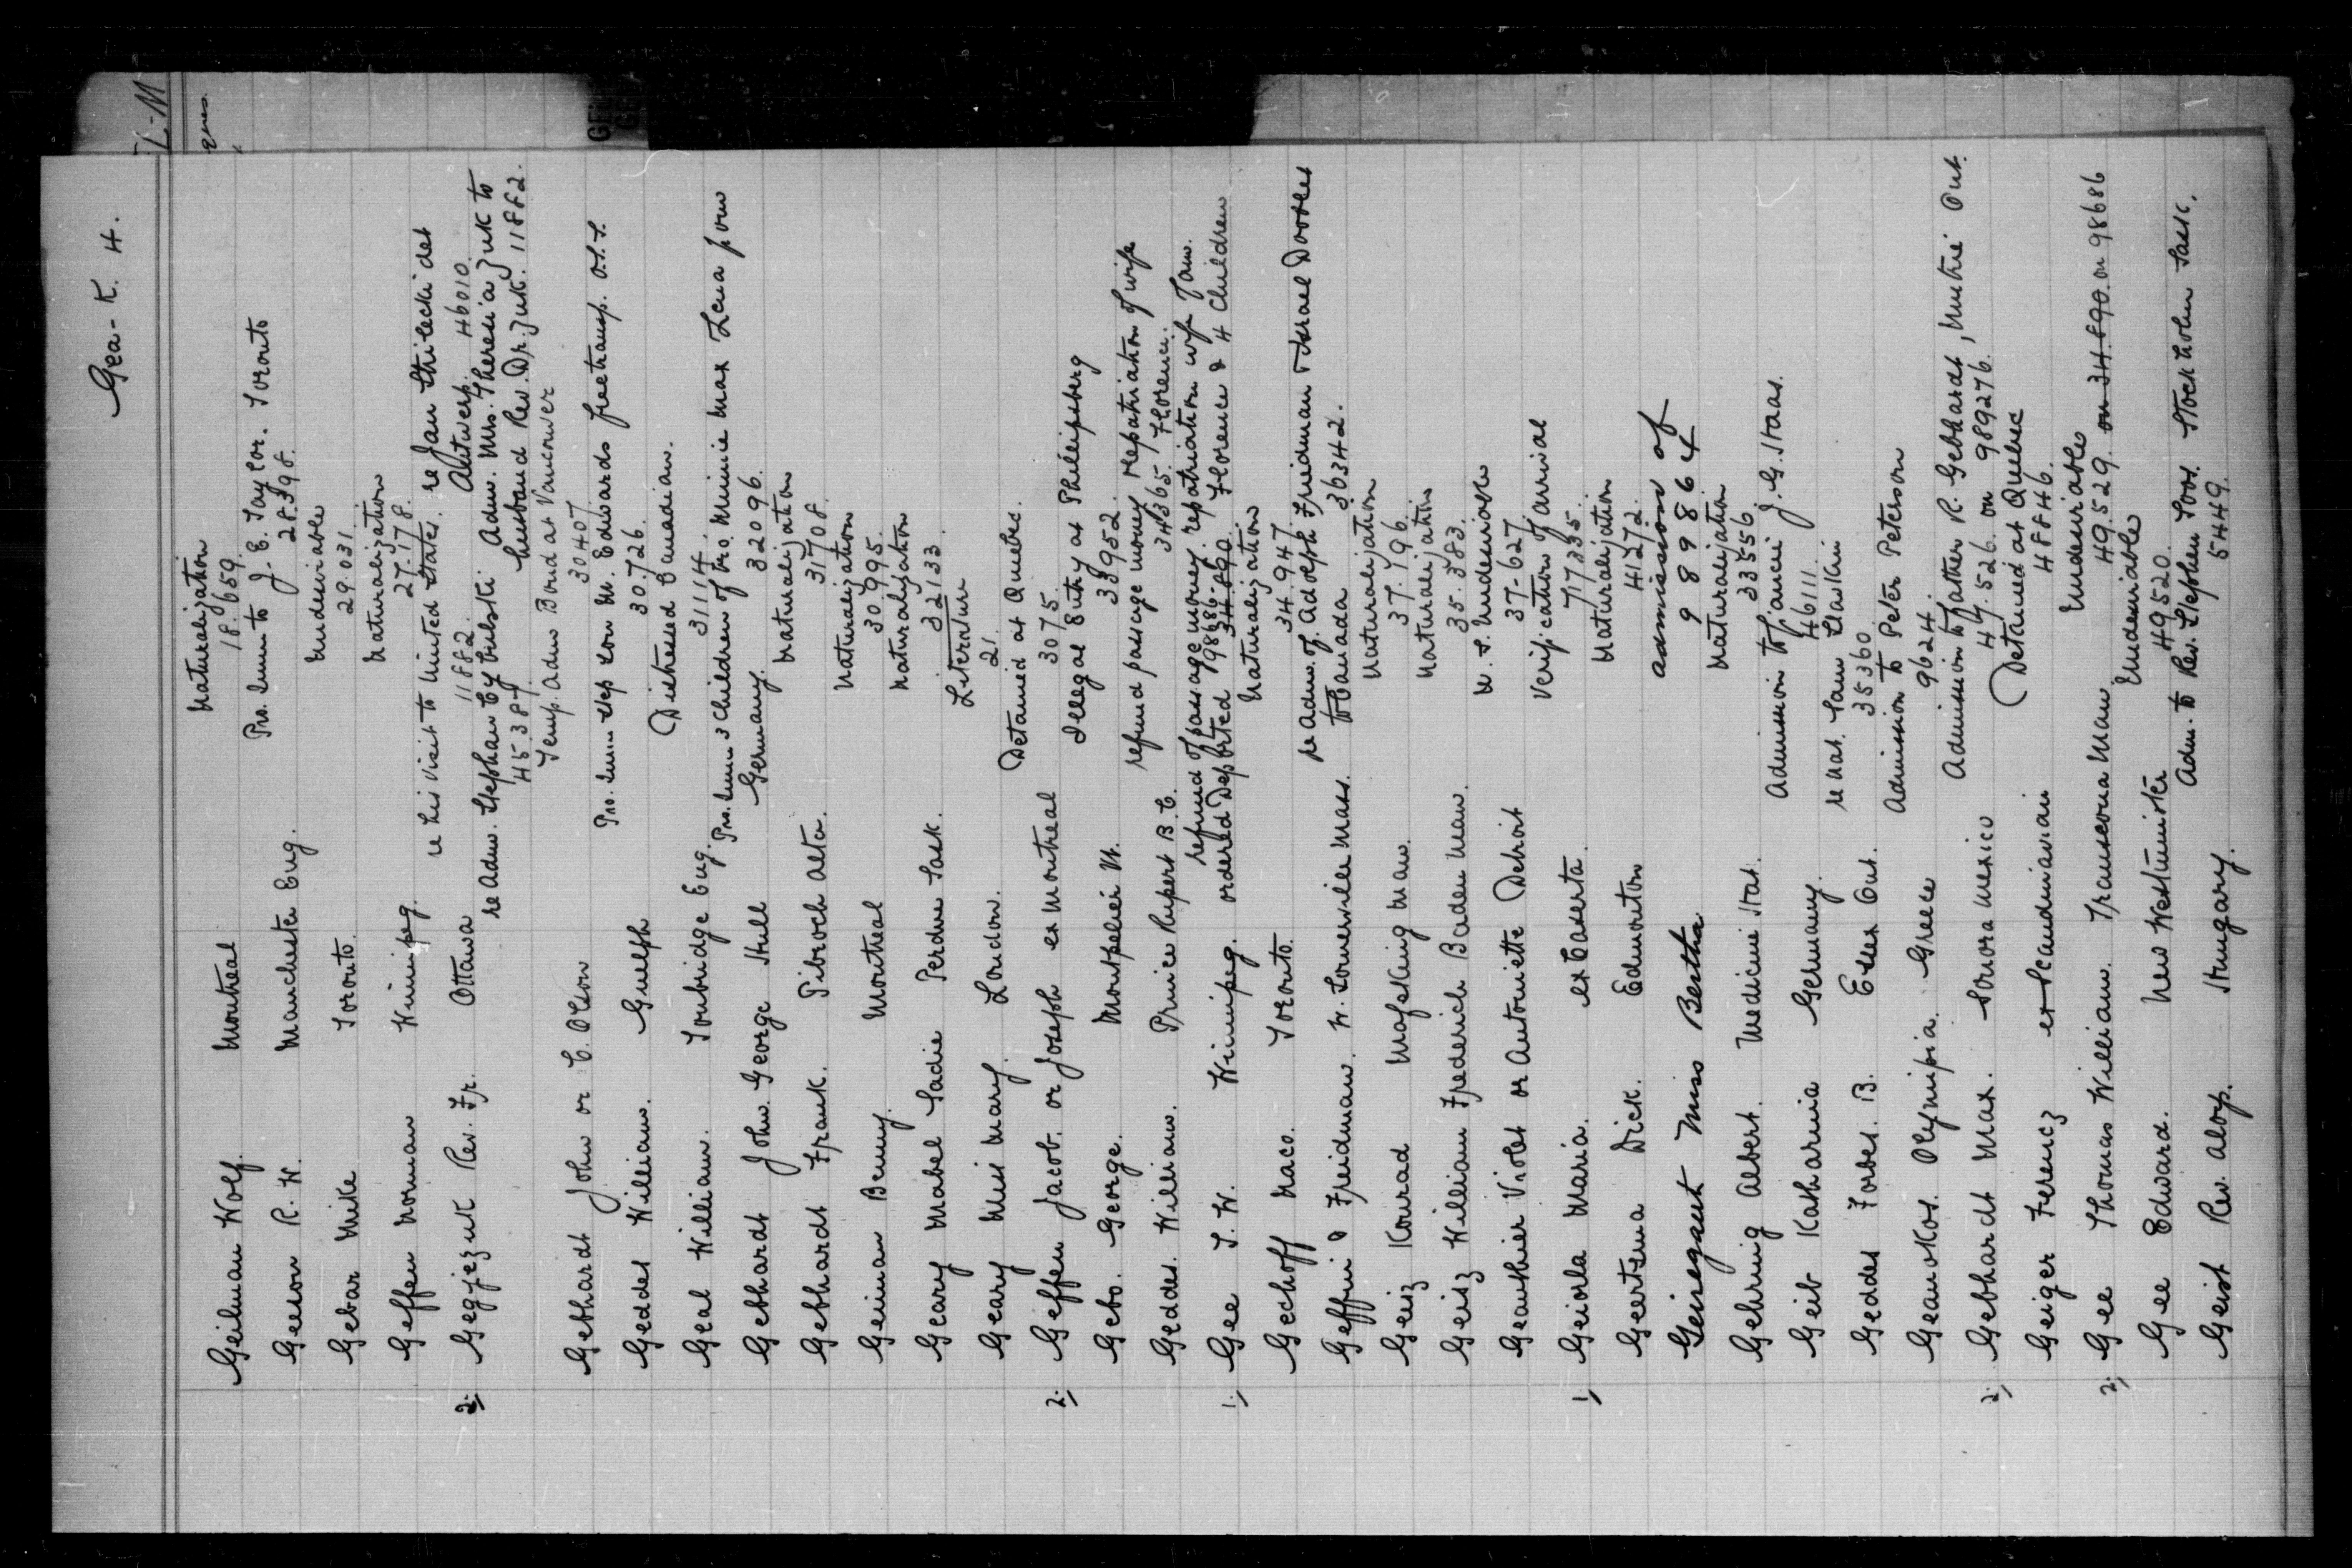 L-M
Gea-K. H.
Geilman Wolf. Montreal Naturalization
18.659.
Geeson R. W. Manchester Eng. Pro. Imm to J. E. Taylor. Toronto
28.398.
Gebar Mike Toronto. Undesirable
29.031.
Geffen Norman Winnipeg. Naturalization
27.178.
2. Gegjezuk Rev. Fr. Ottawa re his visit to United States.
11882.
re Jan Stilecki det Antwerp. 46010.
re Adm. Stephan Cybulski
45387.
Adm. Mrs. Theresia Juk to husband Rev. Dr. Juk. 11882.
Temp. Adm Bond at Vancouver
Gebhardt John or C. Olson
30407.
Geddes William. Guelph Pro. Imm Step son M. Edwards free transp. O.S.S.
30.726.
Geal William. Tonbridge Eng. Distressed Canadian.
31114.
Gebhardt John George Hull Pro. Imm 3 children of bro. Minnie Max Lena from Germany.
32096.
Gebhardt Frank. Pibroch Alta. Naturalization
31708.
Geiman Benny. Montreal Naturalization
30995.
Geary Mabel Sadie Perdue Sask. Naturalization
32133.
Geary Miss Mary. London. Literature
21.
2. Geffen Jacob. or Joseph ex Montreal Detained at Quebec.
3075.
Gebo. George. Montpelier Vt. Illegal Entry at Philipsberg
33952.
Geddes. William. Prince Rupert B.C. refund passage money Repatriation of wife
34365. Florence.
refund of passage money. repatriation wife Jam.
1. Gee T. W. Winnipeg. ordered Deported 98686-34.890. Florence & 4 Children
Gechoff Naco. Toronto. Naturalization
34.947.
Geffin & Freidman. W. Somerville Mass. re Adm. of. Adolph Freidman & Israel Dorles to Canada 36342.
Geisz Konrad Mafeking Man. Naturalization
37.196.
Geisz William Frederich Baden Man. Naturalization
35.383.
Geauthier Violet or Antoinette Detroit U. S. Undesirable
37-627.
1. Geiorla Maria. ex Caserta. Verification of arrival
717335.
Geertsma Dick. Edmonton Naturalization
41272.
Geisegaut Miss Bertha admission of
989864
Gehring Albert. Medicine Hat. Naturalization
33556
Geib Katharina Germany. Admission to fiancé J. G. Staas.
46111.
Geddes Forbes. B. Essex Ont. re Nat. Sam Slavkin
35360
Geanokos. Olympia. Greece Admission to Peter Peterson
9624.
2. Gebhardt Max. Sonora Mexico Admission to father R. Gebhardt, Muskie Ont.
47.526. on 989276.
Geiger Ferencz ex Scandinavian Detained at Quebec
48846.
2. Gee Thomas William. Transcona Man. Undesirable
49.529. on 34.890. on 98686
Gee Edward. New Westminster Undesirable
49520.
Geist Rev. Aloys. Hungary. Adm. to Rev. Stephen Soos. Stockholm Sask.
5449.